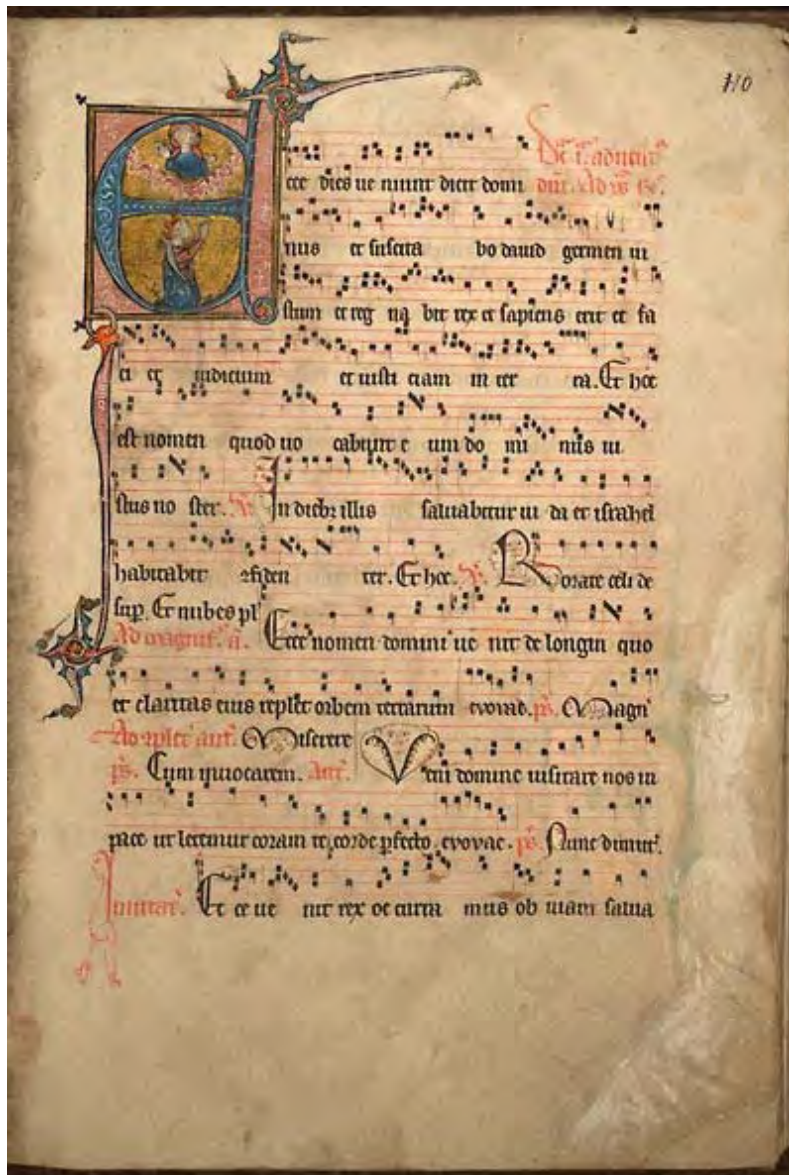 110
cce dies ue niunt dicit domi
nus et suscita bo dauid germen iu
stum et reg na bit rex et sapiens erit et fa
ci et iudicium et iusti ciam in ter ra. Et hoc
est nomen quod uo cabunt e um do mi nus iu
stus no ster. In dieb illis saluabitur iu da et israhel
habitabit fiden ter. Et hoc. Rorate celi de
sup. Et nubes pl
Ad magnif. a. Ecce nomen domini ue nit de longin quo
et claritas eius replet orbem terrarum evovae. ps. Magn
Ad 9plet ant. Miserere
ps. Cum inuocarem. Ant. Veni domine uisitare nos in
pace ut letemur coram te corde pfecto. evovae. ps. Nunc dimit.
Inuitat. Ec ce ue nit rex oc curra mus ob uiam salua